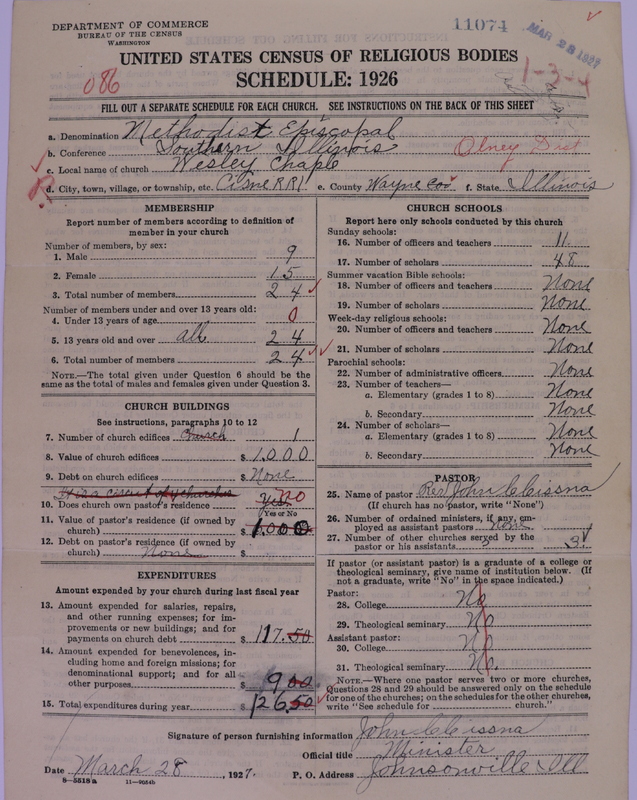 DEPARTMENT OF COMMERCE
BUREAU OF THE CENSUS
WASHINGTON
11074
MAR 28 1927
UNITED STATES CENSUS OF RELIGIOUS BODIES
SCHEDULE: 1926
086
1-3-4
FILL OUT A SEPARATE SCHEDULE FOR EACH CHURCH. SEE INSTRUCTIONS ON THE BACK OF THIS SHEET
a. Denomination Methodist Episcopal
b. Conference Southern Illinois Olney Dist
c. Local name of church Wesley Chaple
d. City, town, village, or township, etc. Cisne RR1 e. County Wayne Co f. State Illinois
MEMBERSHIP
Report number of members according to definition of
member in your church
Number of members, by sex:
1. Male 9
2. Female 15
3. Total number of members 24
Number of members under and over 13 years old:
4. Under 13 years of age 0
5. 13 years old and over all 24
6. Total number of members 24
NOTE.—The total given under Question 6 should be
the same as the total of males and females given under Question 3.
CHURCH BUILDINGS
See instructions, paragraphs 10 to 12
7. Number of church edifices church 1
8. Value of church edifices $ 1000
9. Debt on church edifices $ None
It is a circuit of 4 churches
10. Does church own pastor's residence Yes no
Yes or No
11. Value of pastor's residence (if owned by
church) $ 1000
12. Debt on pastor's residence (if owned by
church) None $
EXPENDITURES
Amount expended by your church during last fiscal year
13. Amount expended for salaries, repairs,
and other running expenses; for im-
provements or new building; and for
payments on church debt $ 117.50
14. Amount expended for benevolences, in-
cluding home and foreign missions; for
denominational support; and for all
other purposes $ 9 00
15. Total expenditures during year $ 126.50
CHURCH SCHOOLS
Report here only schools conducted by this church
Sunday schools:
16. Number of officers and teachers 11
17. Number of scholars 48
Summer vacation Bible schools:
18. Number of officers and teachers None
19. Number of scholars None
Week-day religious schools:
20. Number of officers and teachers None
21. Number of scholars None
Parochial schools:
22. Number of administrative officers None
23. Number of teachers—
a. Elementary (grades 1 to 8) None
b. Secondary None
24. Number of scholars—
a. Elementary (grades 1 to 8) None
b. Secondary None
PASTOR
25. Name of pastor Rev John C Cissna
(If church has no pastor, write "None")
26. Number of ordained ministers, if any, em-
ployed as assistant pastors None
27. Number of other churches served by the
pastor or his assistants 3
If pastor (or assistant pastor) is a graduate of a college or
theological seminary, give name of institution below. (If
not a graduate, write "No" in the space indicated.)
Pastor:
28. College No
29. Theological seminary No
Assistant pastor:
30. College No
31. Theological seminary No.
NOTE.—Where one pastor serves two or more churches,
Questions 28 and 29 should be answered only on the schedule
for one of the churches; on the schedules for the other churches,
write "See schedule for church."
Signature of person furnishing information John C Cissna
Official title Minister
Date March 28, 1927. P. O. Address Johnsonville Ill
8-5518a 11-9654b